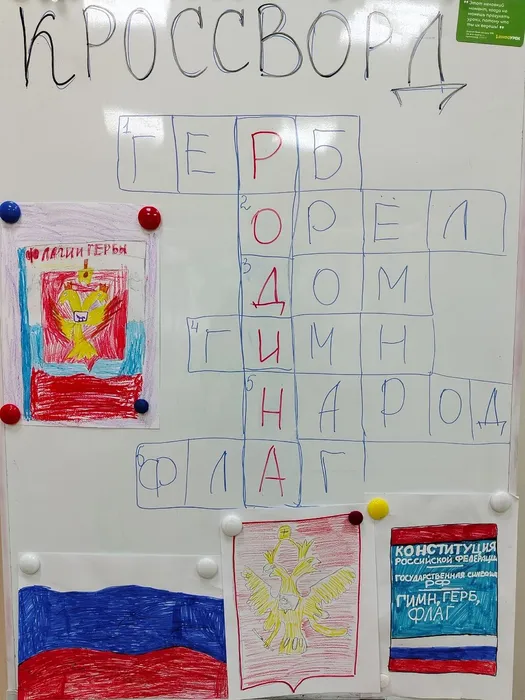 КРОССВОРД
1 ГЕРБ
2 ОРЁЛ
3 ДОМ
4 ГИМН
5 НАРОД
6 ФЛАГ
ФЛАГИ И ГЕРБЫ
КОНСТИТУЦИЯ
РОССИЙСКОЙ ФЕДЕРАЦИИ
ГОСУДАРСТВЕННАЯ СИМВОЛИКА
РФ
ГИМН, ГЕРБ,
ФЛАГ